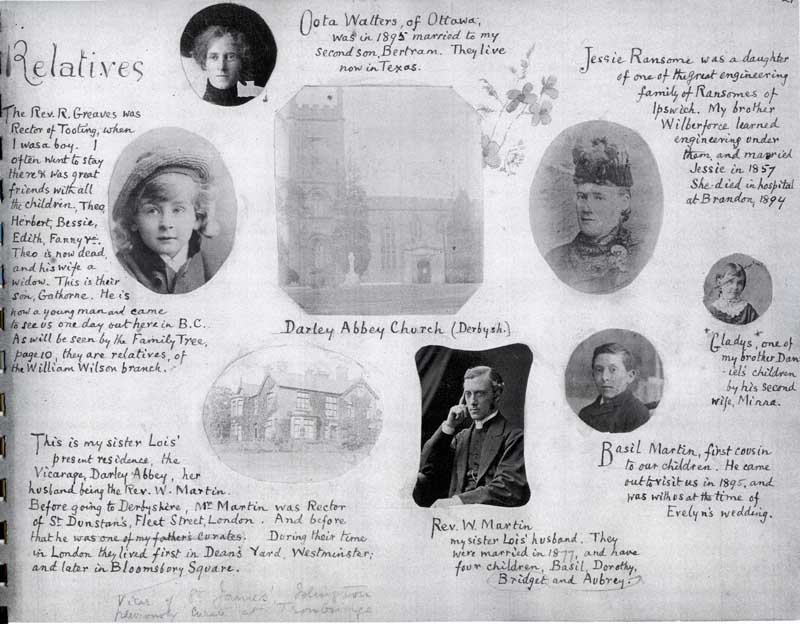 Relatives
Oota Walters, of Ottawa,
was in 1895 married to my
second son, Bertram. They live
now in Texas.
Jessie Ransome was a daughter
of one of the great engineering
family of Ransomes of
Ipswich. My brother
Wilberforce learned
engineering under
them, and married
Jessie in 1857
She died in hospital
at Brandon, 1894
The Rev. R. Greaves was
Rector of Tooting, when
I was a boy. I
often went to stay
there & was great
friends with all
the children, Theo,
Herbert, Bessie,
Edith, Fanny
Theo is now dead,
and his wife a
widow. This is their
son, Gathorne. He is
now a young man and came
to see us one day out here in B.C.
As will be seen by the Family Tree,
page 10, they are relatives, of
the William Wilson branch.
Darley Abbey Church (Derbysh.)
"Gladys, one of
my brother Dan-
-iel's children
by his second
wife, Minna.
This is my sister Lois'
present residence, the
Vicarage, Darley Abbey, her
husband being the Rev. W. Martin.
Before going to Derbyshire, Mr Martin was Rector
of St Dunstan's, Fleet Street, London. And before
that he was one of my father's curates. During their time
in London they lived first in Dean's Yard, Westminster;
and later in Bloomsbury Square.
Rev. W. Martin
my sister Lois' husband. They
were married in 1877, and have
four children, Basil, Dorothy,
Bridget and Aubrey.
Basil Martin, first cousin
to our children. He came
out to visit us in 1895, and
was with us at the time of
Evelyn's wedding.
Vicar of St James' Islington
previously Curate at